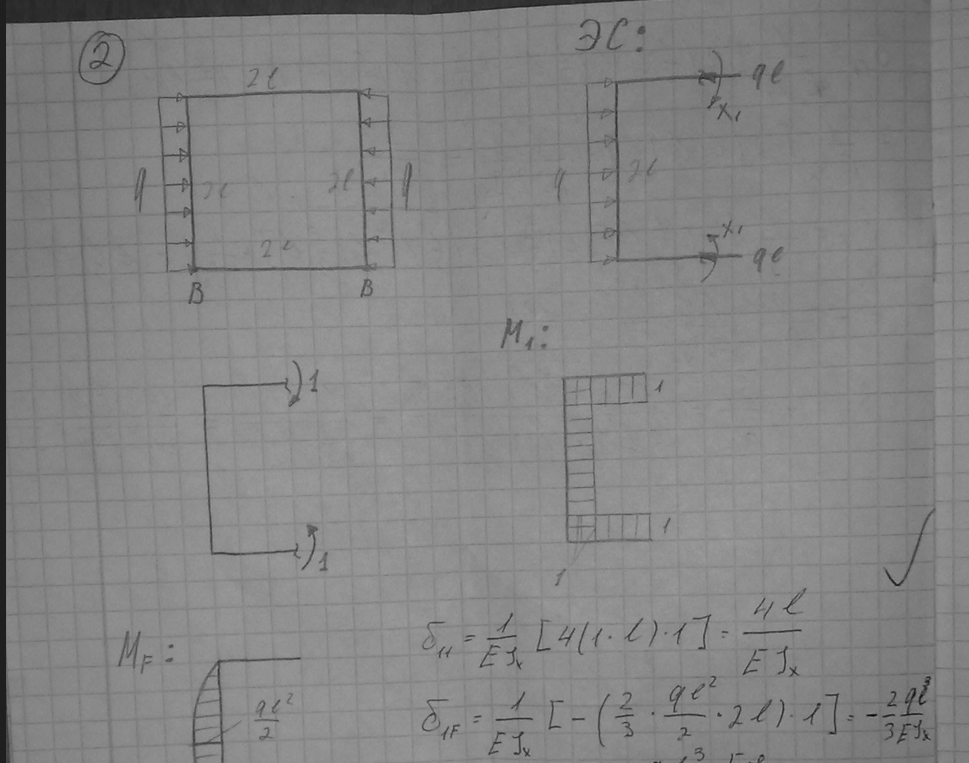 2
ЭС:
2l
q 2l 2l q
2l
B B
ql
X₁
q 2l
X₁
ql
M₁:
1
1
1
1
1
M_F:
ql²/2
δ₁₁ = 1/(EJₓ) [4(1·l)·1] = 4l/(EJₓ)
δ₁F = 1/(EJₓ) [-(2/3 · ql²/2 · 2l)·1] = -2/3 ql³/(EJₓ)